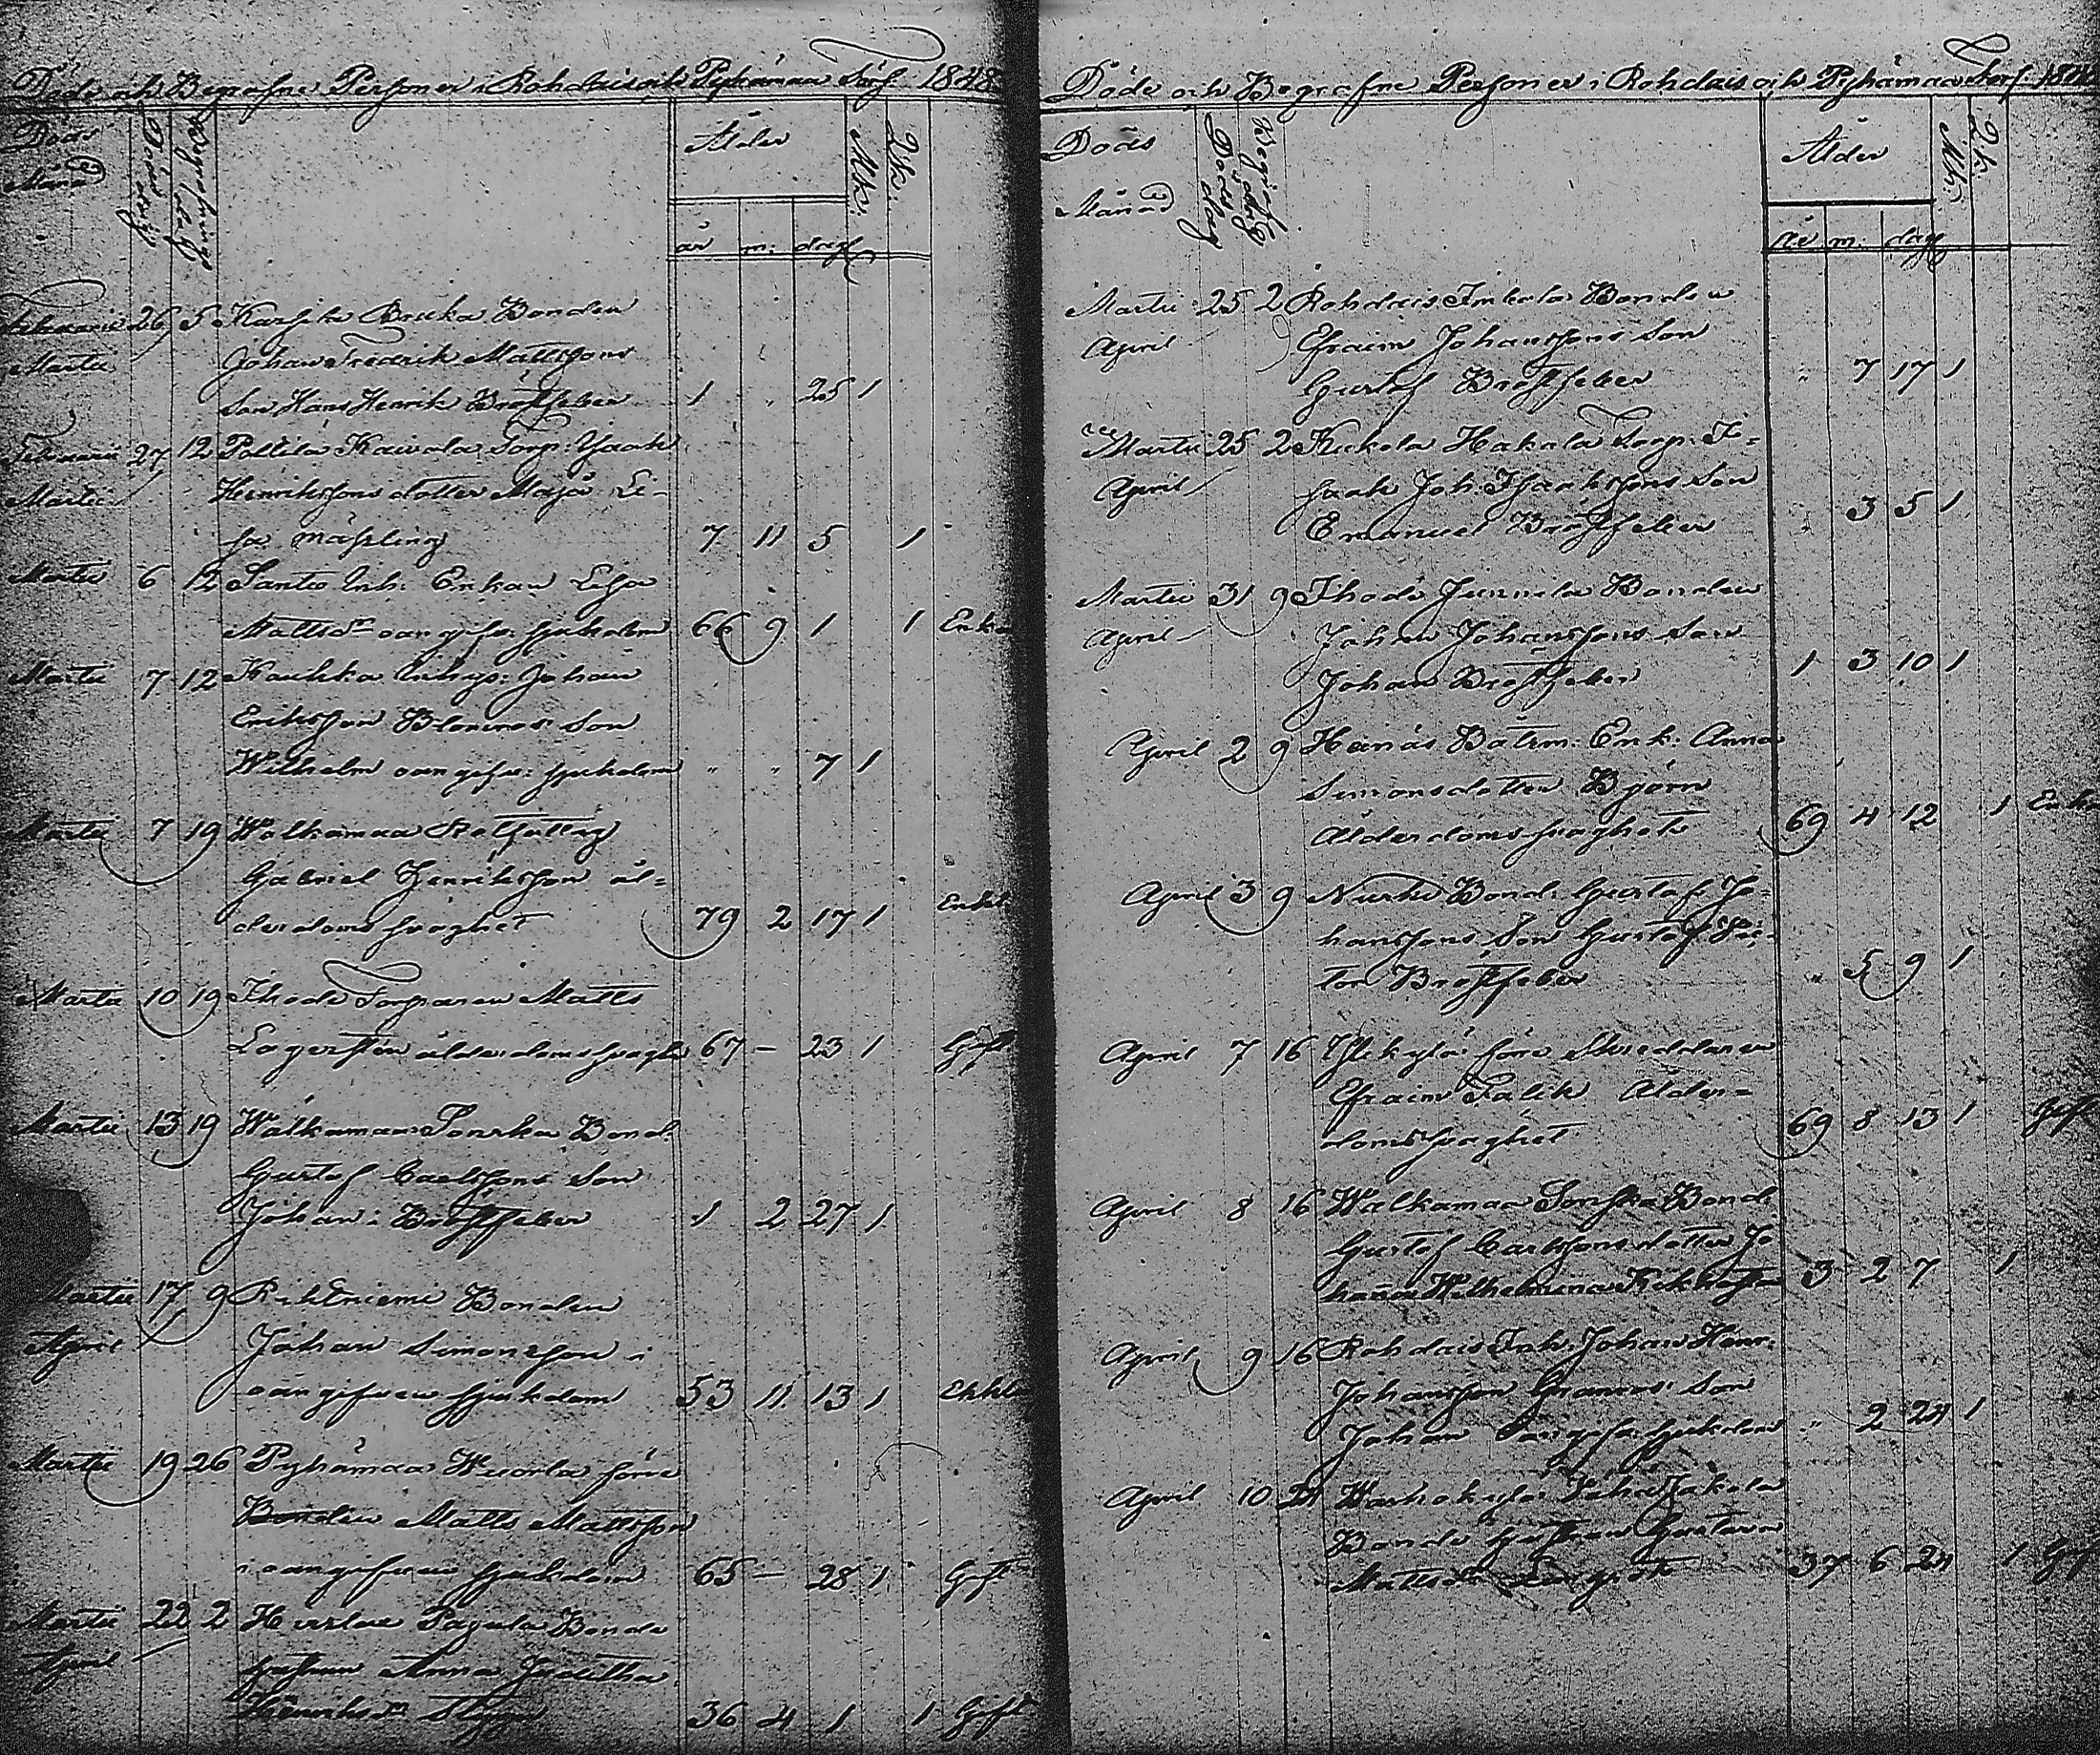 Döde och Begrafne Personer i Rohdais och Pyhämaa Förs. 1848
Döds Månad
Döds dag
Begrafnings dag
Ålder
Mk:
Qk:
år m: dag
Februarii 26 5 Bonden
Martii Johan Fredrik Mattssons
Son Hans Henrik Bröstfeber 1 " 25 1
Februarii 27 12 Pollila Kaivola Torp: Isaak
Martii Henrikssons dotter Maja Li-
sa mässling 7 11 5 1
Martii 6 12 Santio Inh: Enkan Lisa
Mattsdr oangifv: sjukdom 66 9 1 1 Enka
Martii 7 12 Kauhka Inhys: Johan
Eriksson Blomros Son
Wilhelm oangifv: sjukdom " " 7 1
Martii 7 19 Walkamaa Rotfattig
Gabriel Henriksson ål=
derdoms svaghet 79 2 17 1 Enkl
Martii 10 19 Ihode Torparen Matts
Lagersten ålderdoms svagh 67 — 23 1 Gift
Martii 13 19 Walkamaa Bond.
Gustaf Carlssons Son
Johan i Bröstfeber 1 2 27 1
Martii 17 9 Rihtniemi Bonden
April Johan Simonsson i
oangifven sjukdom 53 11 13 1 Enkl
Martii 19 26 Pyhämaa Wuorla förre
Bonden Matts Mattsson
i oangifven sjukdom 65 — 28 1 Gift
Martii 22 2 Pajula Bonde
April hustrun Anna Juditha
Henriksdr 36 4 1 1 Gift
Döde och Begrafne Personer i Rohdais och Pyhämaa Förs. 1848
Döds
Månad
Döds dag
Begrafn dag
Ålder
Mk:
Qk:
år m: dag
Martii 25 2 Rohdais Imbola Bonden
April Efraim Johanssons Son
Gustaf Bröstfeber " 7 17 1
Martii 25 2 Kukola Hakala Torp: I=
April saak Joh: Isaakssons Son
Emanuel Bröstfeber " 3 5 1
Martii 31 9 Ihode Junnila Bonden
April Johan Johanssons Son
Johan Bröstfeber 1 3 10 1
April 2 9 Heinäs Båtsm: Enk: Anna
Simonsdotter Björn
Ålderdoms svaghet 69 4 12 1 Enka
April 3 9 Nurki Bond: Gustaf Jo=
hanssons Son Gustaf Vic=
tor Bröstfeber " 5 9 1
April 7 16 Ylikylä förre Skräddaren
Efraim Falik Ålder=
doms svaghet 69 8 13 1 Gift
April 8 16 Walkamaa Bond.
Gustaf Carlssons dotter Jo
hanna Wilhelmina Kikhosta 3 2 7 1
April 9 16 Rohdais Inh: Johan Henr:
Johansson Granros Son
Johan oangifv: sjukdom " 2 24 1
April 10 24 Warhokylä
Bonde hustrun Gustava
Mattsdr 37 6 24 1 Gift